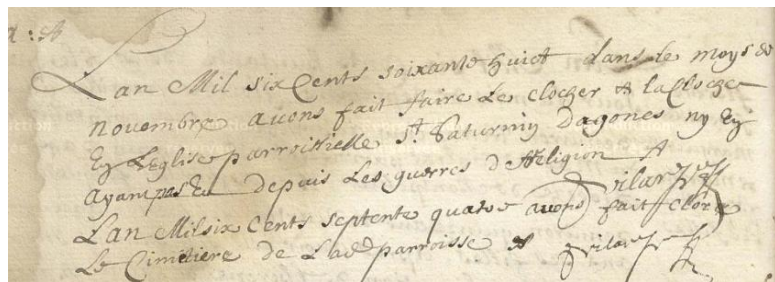 Lan Mil six Cents soixante huict dans le moys de
novembre avons fait faire Le clocher & la Cloche
En Leglise parroissielle St Saturnin Dagones ny En
ayant pas Eu depuis Les guerres de Religion
Lan Mil six Cents septente quatre avons fait Clore
Le Cimitiere de Lad parroisse